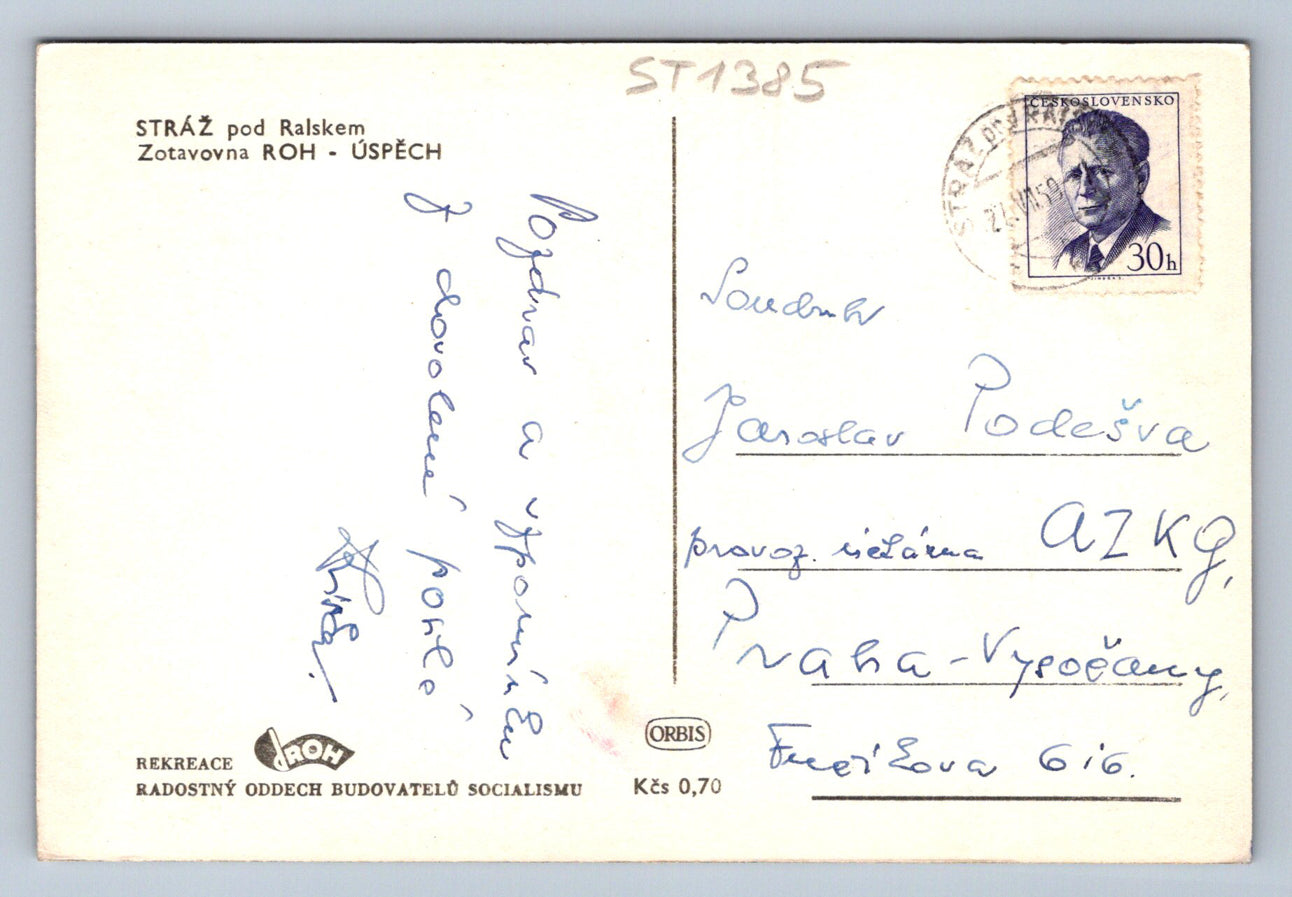 ST1385
STRÁŽ pod Ralskem
Zotavovna ROH - ÚSPĚCH
ČESKOSLOVENSKO
30h
STRÁŽ POD RALSKEM
Pozdrav a vzpomínku
z dovolené posílá
Soudruh
Jaroslav Podešva
provoz. účtárna AZKG,
Praha - Vysočany,
Fučíkova 616.
ROH
REKREACE
RADOSTNÝ ODDECH BUDOVATELŮ SOCIALISMU
ORBIS
Kčs 0,70